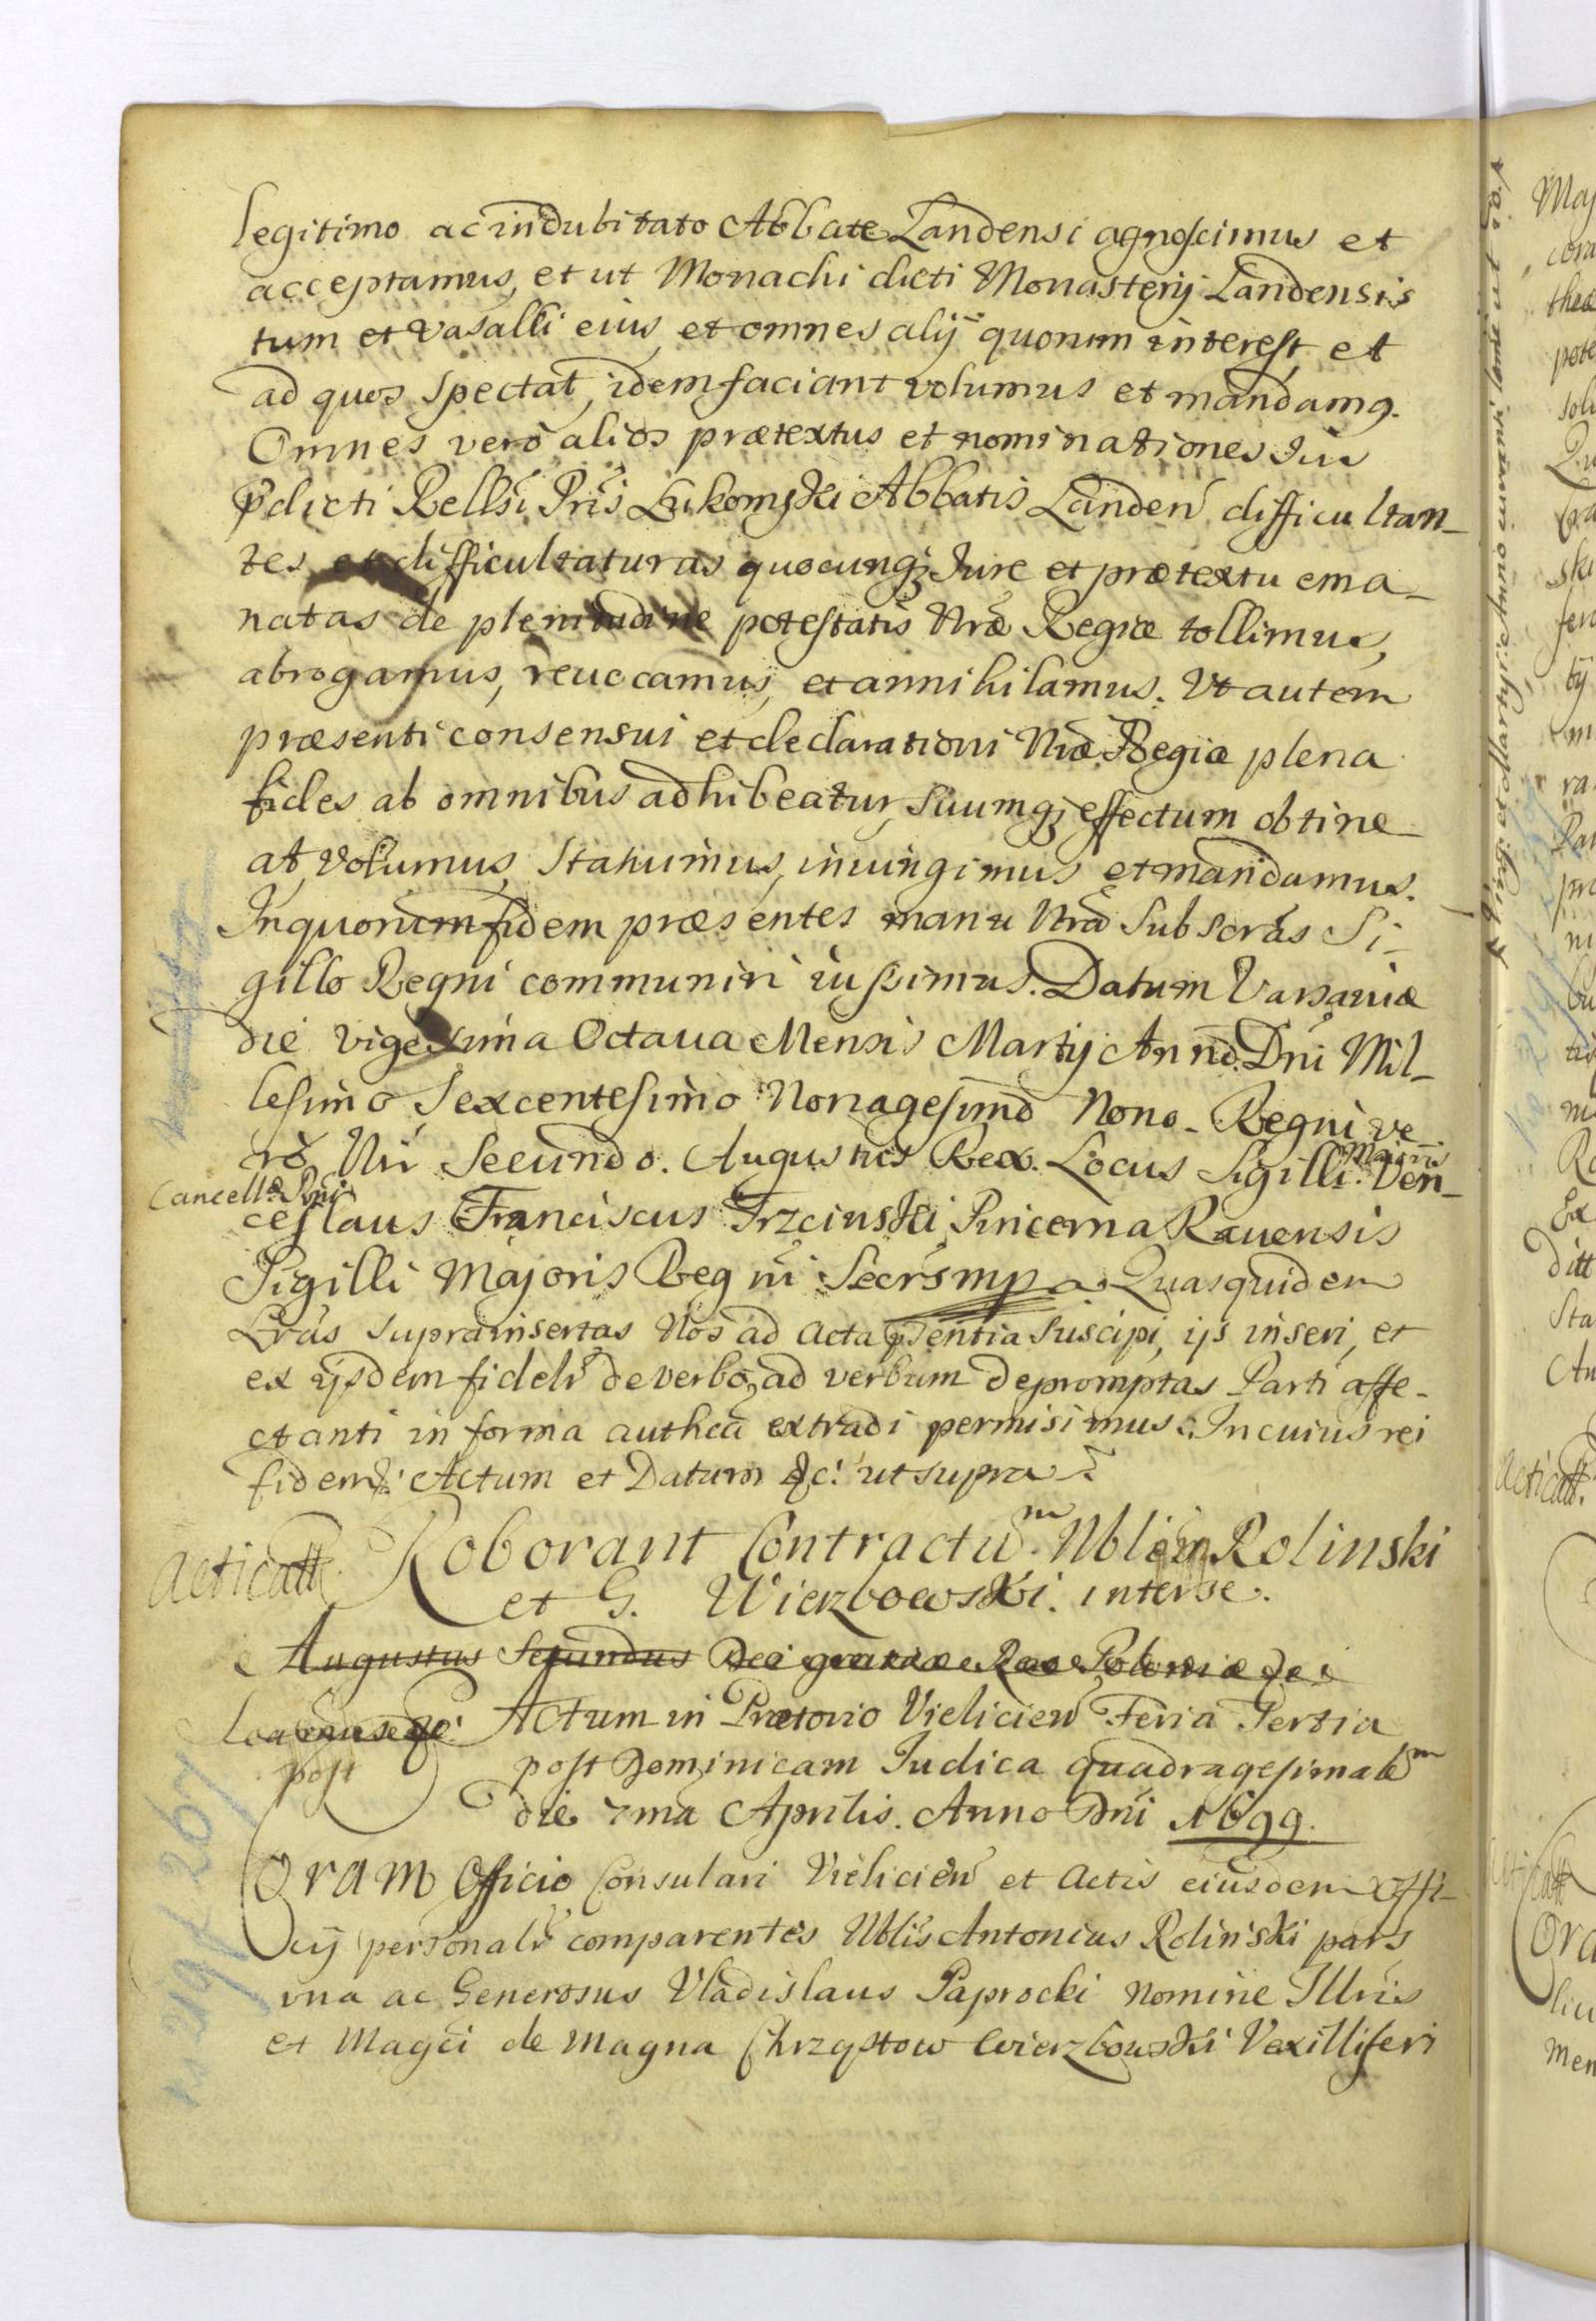 legitimo ac indubitato Abbate Landensi agnoscimus et
acceptamus, et ut Monachi dicti Monasterij Landensis
tum et vasalli eius et omnes alij quorum interest, et
ad quos spectat, idem faciant volumus et mandamq.
Omnes verò alios prætextus et nominationes Iuri
pdicti Rellsi Pris Łukomski Abbatis Landeń difficultan_
tes et difficultaturas quocunqz Iure et prætextu ema_
natas de plenitudine potestatis Nræ Regiæ tollimus,
abrogamus, reuocamus, et annihilamus. Vt autem
præsenti consensui et declarationi Nræ Regiæ plena
fides ab omnibus adhibeatur, suumqz effectum obtine
at, volumus, statuimus, iniungimus et mandamus.
In quorum fidem præsentes manu Nra subscras Si_
gillo Regni communiri iussimus. Datum Varsauiæ
die vigesima Octaua Mensis Martij Anno Dni Mil_
lesimo Sexcentesimo Nonagesimo Nono. Regni ve
rò Nri Secundo. Augustus Rex. Locus Sigilli Majoris Ven_
Cancell
ceslaus Franciscus Trzcinski Pincerna Rauensis
Sigilli Majoris Regni Secrs mp Quas quidem
Lras suprainsertas Nos ad Acta pntia suscipi, ijs inseri, et
ex ijsdem fidelr de verbo, ad verbum depromptas Parti affe_
ctanti in forma authca extradi permisimus. In cuius rei
fidem. Actum et Datum &c. ut supra
Acticatt. Roborant Contractum Nblem Rolinski
et G. Wierzbowski. inter se.
Augustus Secundus Dei gratia Rex Poloniæ
Actum in Prætorio Vielicień Feria Tertia
post post Dominicam Iudica quadragesimalem
die 7ma Aprilis. Anno Dni 1699.
Coram Officio Consulari Vielicień et Actis eiusdem Offi_
cij personalr comparentes Nblis Antonius Rolinski pars
vna ac Generosus Vladislaus Paprocki nomine Illris
et Magci de Magna Chrząstow Wierzbowski Vexilliferi
n. 219 f. 267